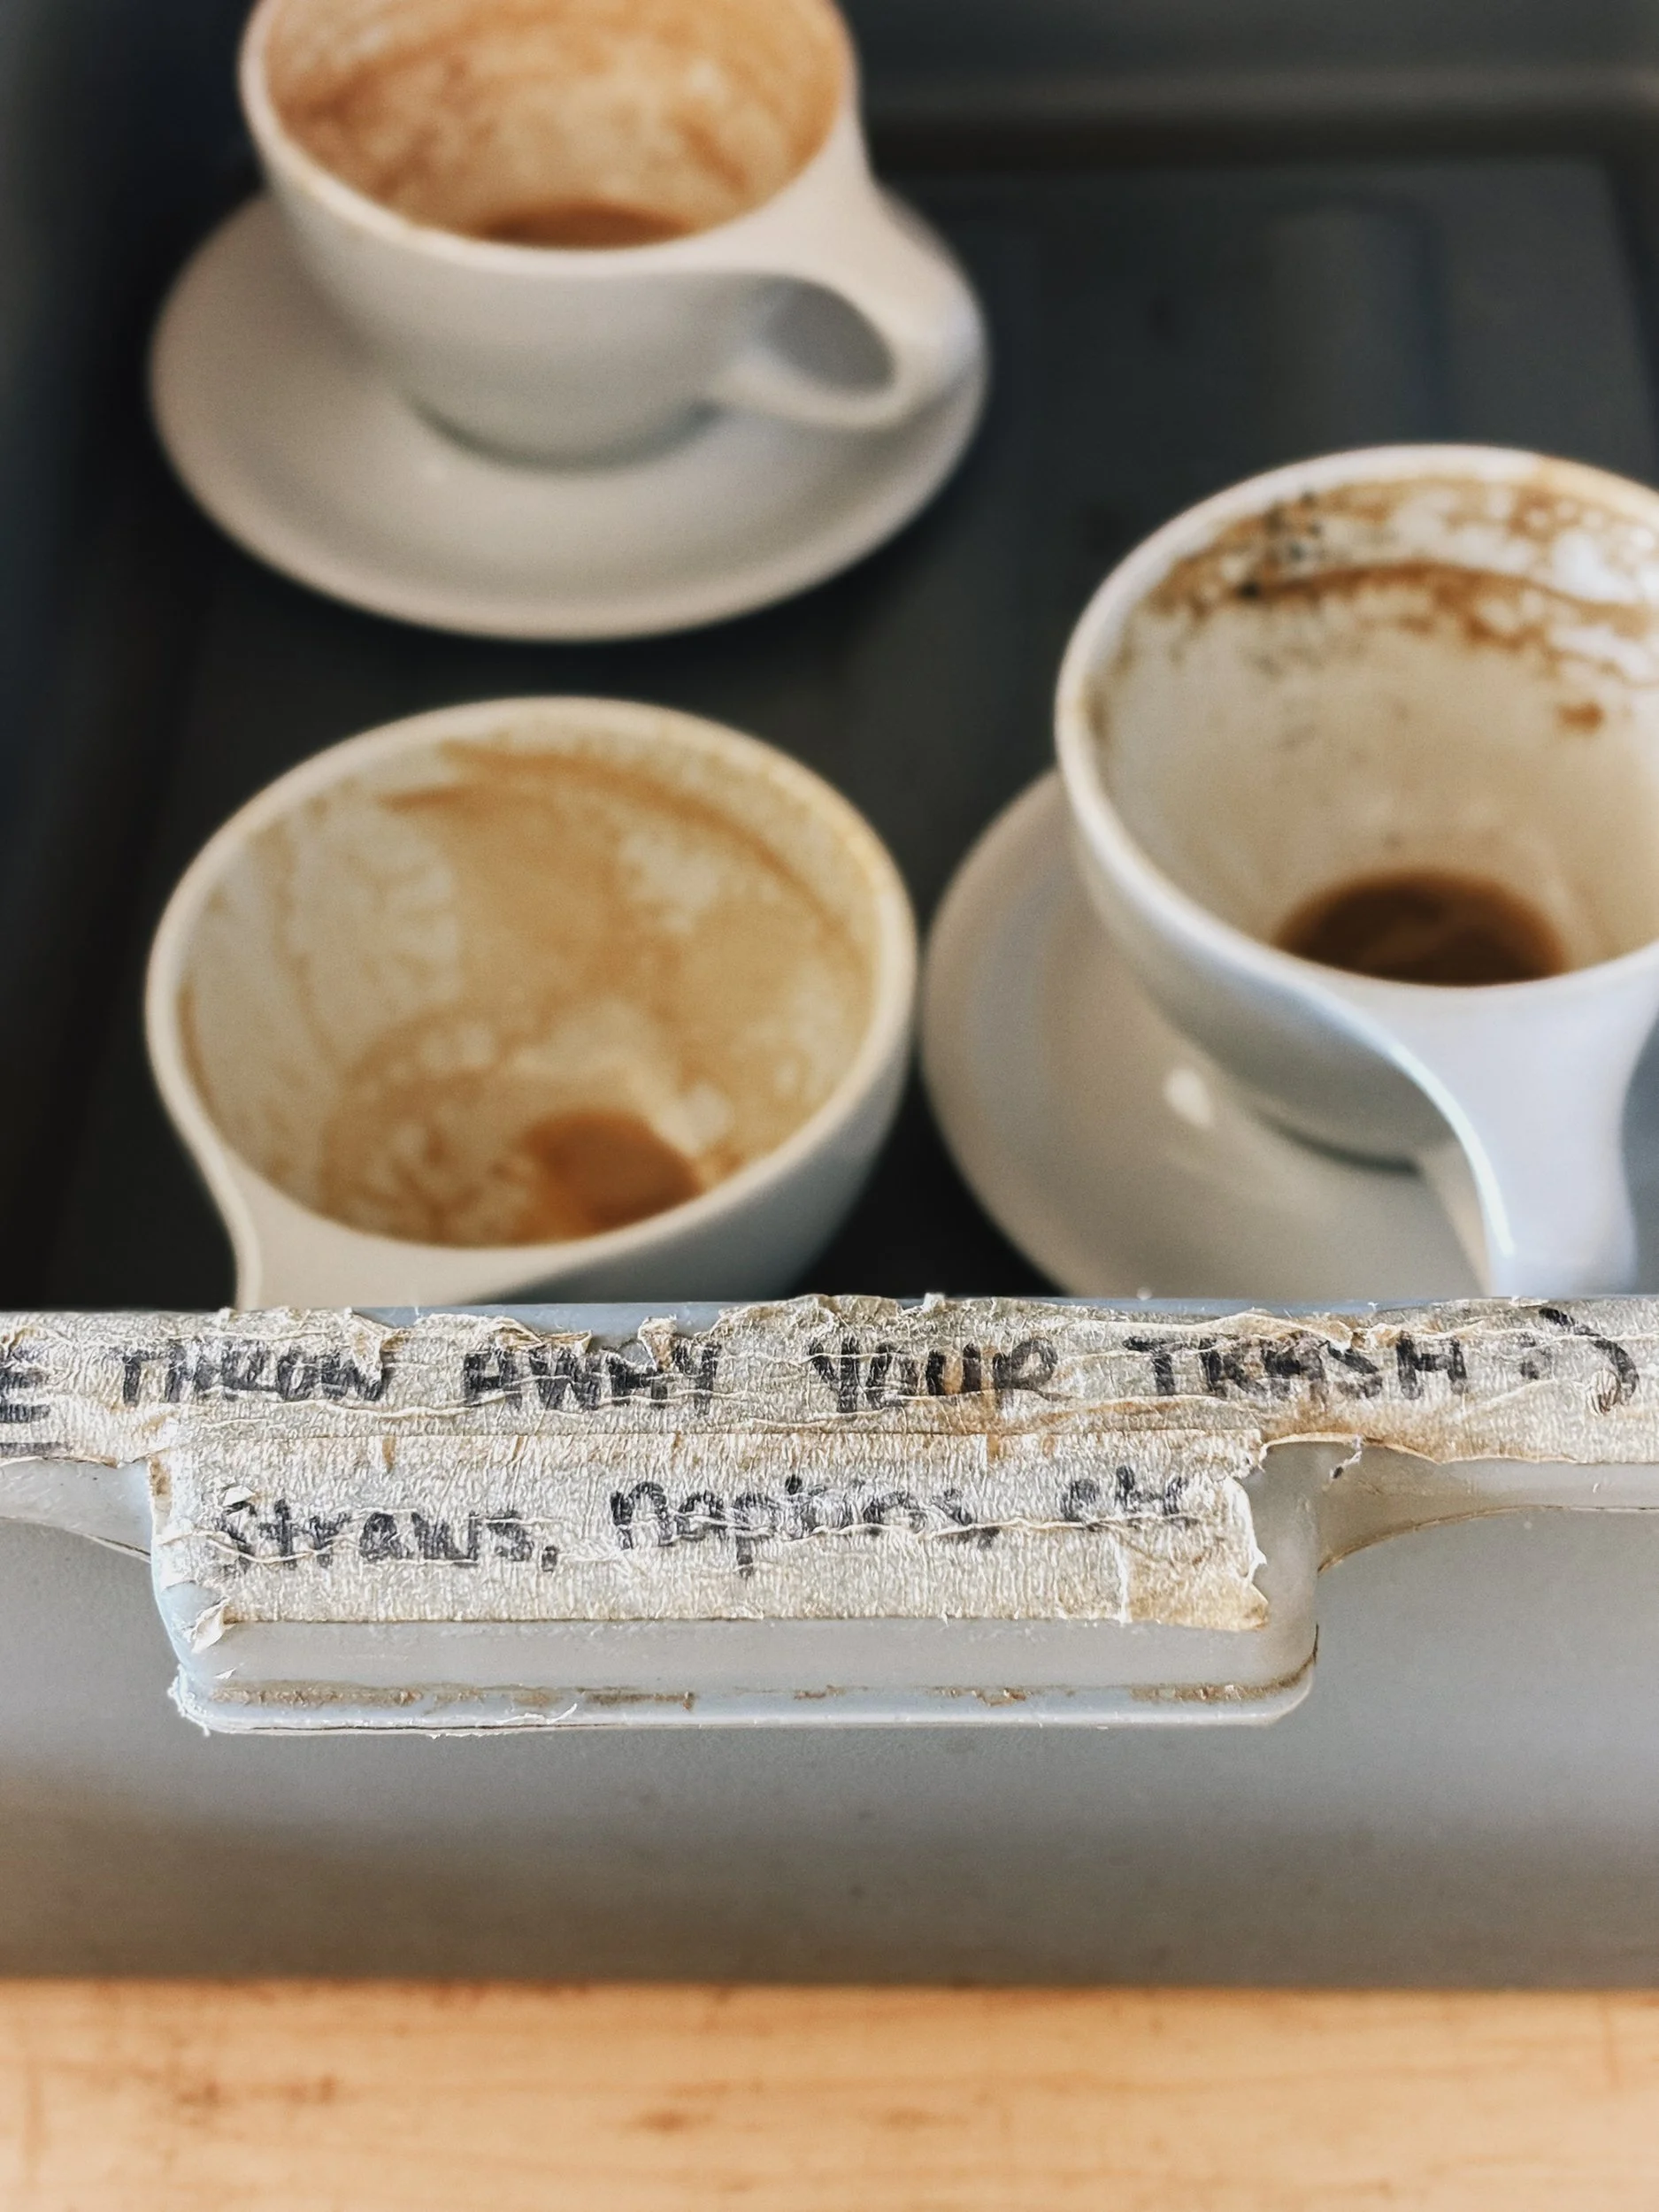 E THROW AWAY YOUR TRASH :)
Straws, Napkins, etc